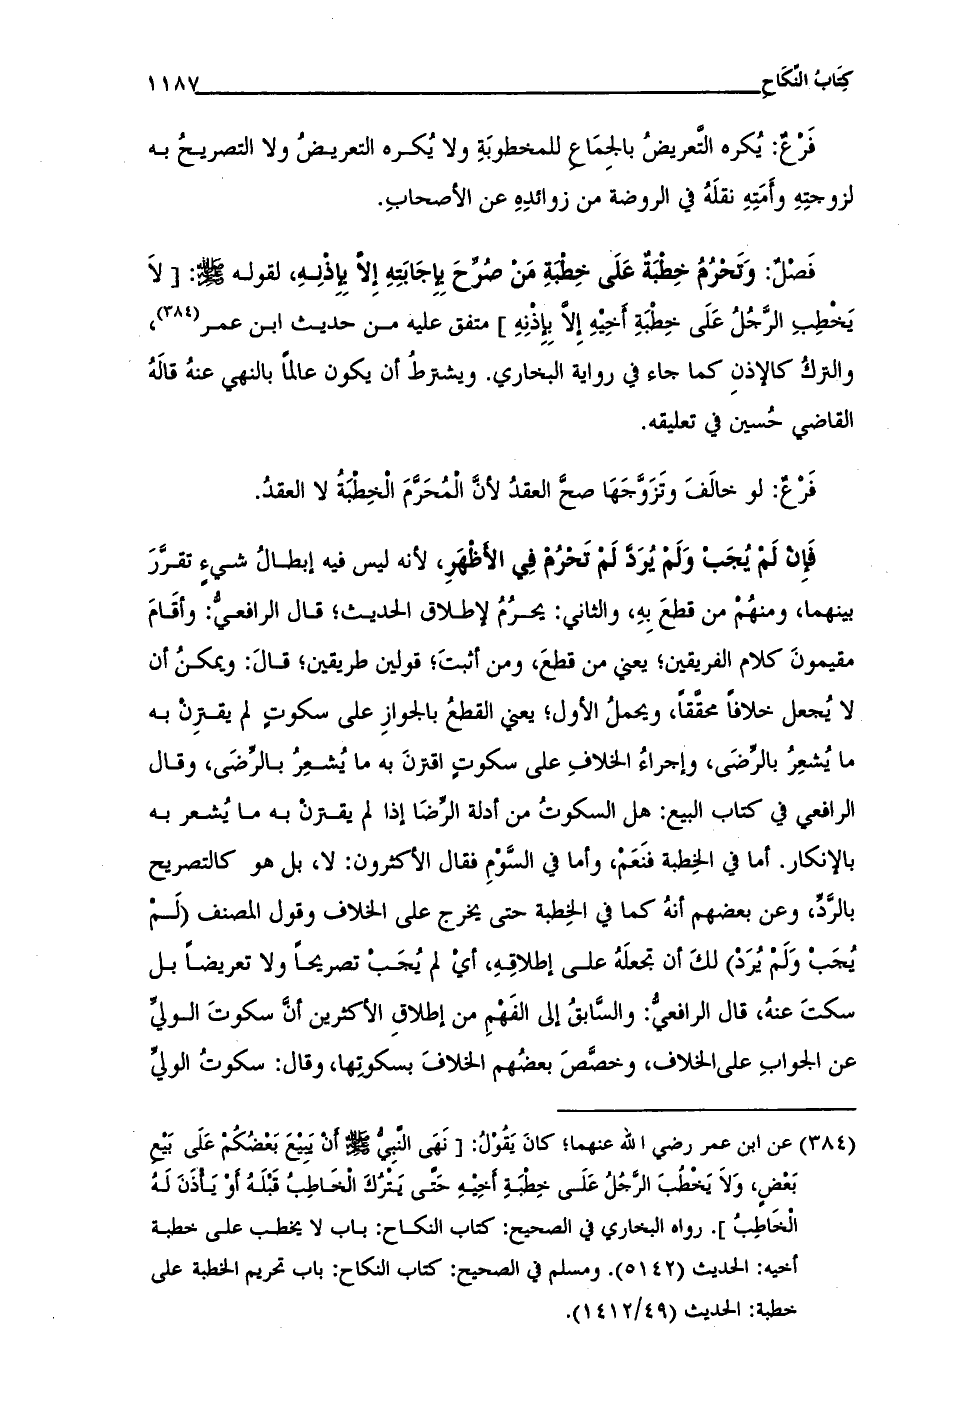 كِتَابُ النِّكَاحِ ١١٨٧
فَرْعٌ: يُكره التَّعريضُ بالجِمَاعِ للمخطوبَةِ ولا يُكره التعريضُ ولا التصريحُ به
لزوجتِهِ وأَمَتِهِ نقلَهُ في الروضة من زوائدِهِ عن الأصحابِ.
فَصْلٌ: وَتَحْرُمُ خِطْبَةٌ عَلَى خِطْبَةِ مَنْ صُرِّحَ بِإِجَابَتِهِ إِلاَّ بِإِذْنِهِ، لقوله ﷺ: [ لاَ
يَخْطِبِ الرَّجُلُ عَلَى خِطْبَةِ أَخِيْهِ إِلاَّ بِإِذْنِهِ ] متفق عليه من حديث ابن عمر(٣٨٤)،
والتركُ كالإذنِ كما جاء في رواية البخاري. ويشترطُ أن يكون عالماً بالنهي عنهُ قالَهُ
القاضي حُسين في تعليقه.
فَرْعٌ: لو خالَفَ وتَزَوَّجَهَا صحَّ العقدُ لأنَّ الْمُحَرَّمَ الْخِطْبَةُ لا العقدُ.
فَإِنْ لَمْ يُجَبْ وَلَمْ يُرَدَّ لَمْ تَحْرُمْ فِي الأَظْهَرِ، لأنه ليس فيه إبطالُ شيءٍ تقرَّرَ
بينهما، ومنهُمْ من قطعَ بِهِ، والثاني: يحرُمُ لإطلاق الحديث؛ قال الرافعيُّ: وأقَامَ
مقيمونَ كلام الفريقين؛ يعني من قطعَ، ومن أثبتَ؛ قولين طريقين؛ قالَ: ويمكنُ أن
لا يُجعل خلافاً محقَّقاً، ويحملُ الأول؛ يعني القطعُ بالجوازِ على سكوتٍ لم يقترِنْ به
ما يُشعِرُ بالرِّضَى، وإجراءُ الخلافِ على سكوتٍ اقترنَ به ما يُشعِرُ بالرِّضَى، وقال
الرافعي في كتاب البيع: هل السكوتُ من أدلة الرِّضَا إذا لم يقترنْ به ما يُشعر به
بالإنكار. أما في الخِطبة فنَعَمْ، وأما في السَّوْمِ فقال الأكثرون: لا، بل هو كالتصريح
بالرَّدِّ، وعن بعضهم أنهُ كما في الخِطبة حتى يخرج على الخلاف وقول المصنف (لَمْ
يُجَبْ وَلَمْ يُرَدْ) لكَ أن تجعلَهُ على إطلاقِهِ، أيْ لم يُجَبْ تصريحاً ولا تعريضاً بل
سكتَ عنهُ، قال الرافعيُّ: والسَّابقُ إلى الفَهْمِ من إطلاقِ الأكثرين أنَّ سكوتَ الوليِّ
عن الجوابِ على الخلاف، وخصَّصَ بعضُهم الخلافَ بسكوتِها، وقال: سكوتُ الوليِّ
(٣٨٤) عن ابن عمر رضي الله عنهما؛ كانَ يَقُوْلُ: [ نَهَى النَّبِيُّ ﷺ أَنْ يَبِيْعَ بَعْضُكُمْ عَلَى بَيْعِ
بَعْضٍ، وَلاَ يَخْطُبَ الرَّجُلُ عَلَى خِطْبَةِ أَخِيْهِ حَتَّى يَتْرُكَ الْخَاطِبُ قَبْلَهُ أَوْ يَأْذَنَ لَهُ
الْخَاطِبُ ]. رواه البخاري في الصحيح: كتاب النكاح: باب لا يخطب على خطبة
أخيه: الحديث (٥١٤٢). ومسلم في الصحيح: كتاب النكاح: باب تحريم الخطبة على
خطبة: الحديث (١٤١٢/٤٩).